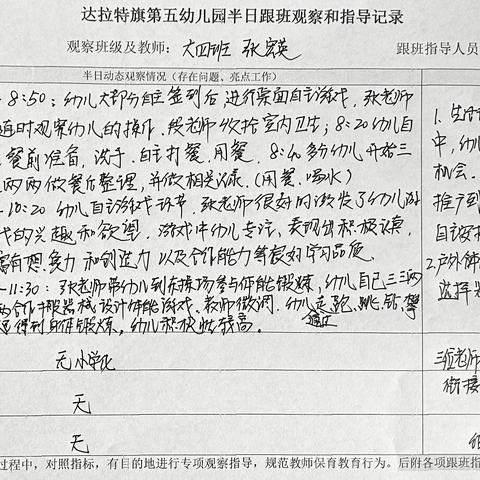 达拉特旗第五幼儿园半日跟班观察和指导记录
观察班级及教师：大四班 张 跟班指导人员
半日动态观察情况（存在问题、亮点工作）
8:50：幼儿大部分自主签到后进行桌面自主游戏，张老师 1、生活
适时观察幼儿的操作，段老师收拾室内卫生；8:20幼儿自 中，幼儿
餐前准备，洗手、自主打餐、用餐，8:40多幼儿开始三 机会、
两两做餐后整理，并做相关记录。（用餐、喝水） 推广到
-10:20 幼儿自主游戏环节，张老师很好的激发了幼儿游 自主
戏的兴趣和欲望，游戏中幼儿专注，表现出积极认真，
富有想象力和创造力以及合作能力等良好学习品质。 2、户外
-11:30：张老师带幼儿到东操场参与体能锻炼，幼儿自己三三两 选择
两合作搬器械设计体能游戏，教师微调，幼儿走、跑、跳、钻、攀
通过 得到身体锻炼，幼儿积极性较高。
无小学化 三位老师
衔接
无
无
过程中，对照指标，有目的地进行专项观察指导，规范教师保育教育行为。后附各项跟班指